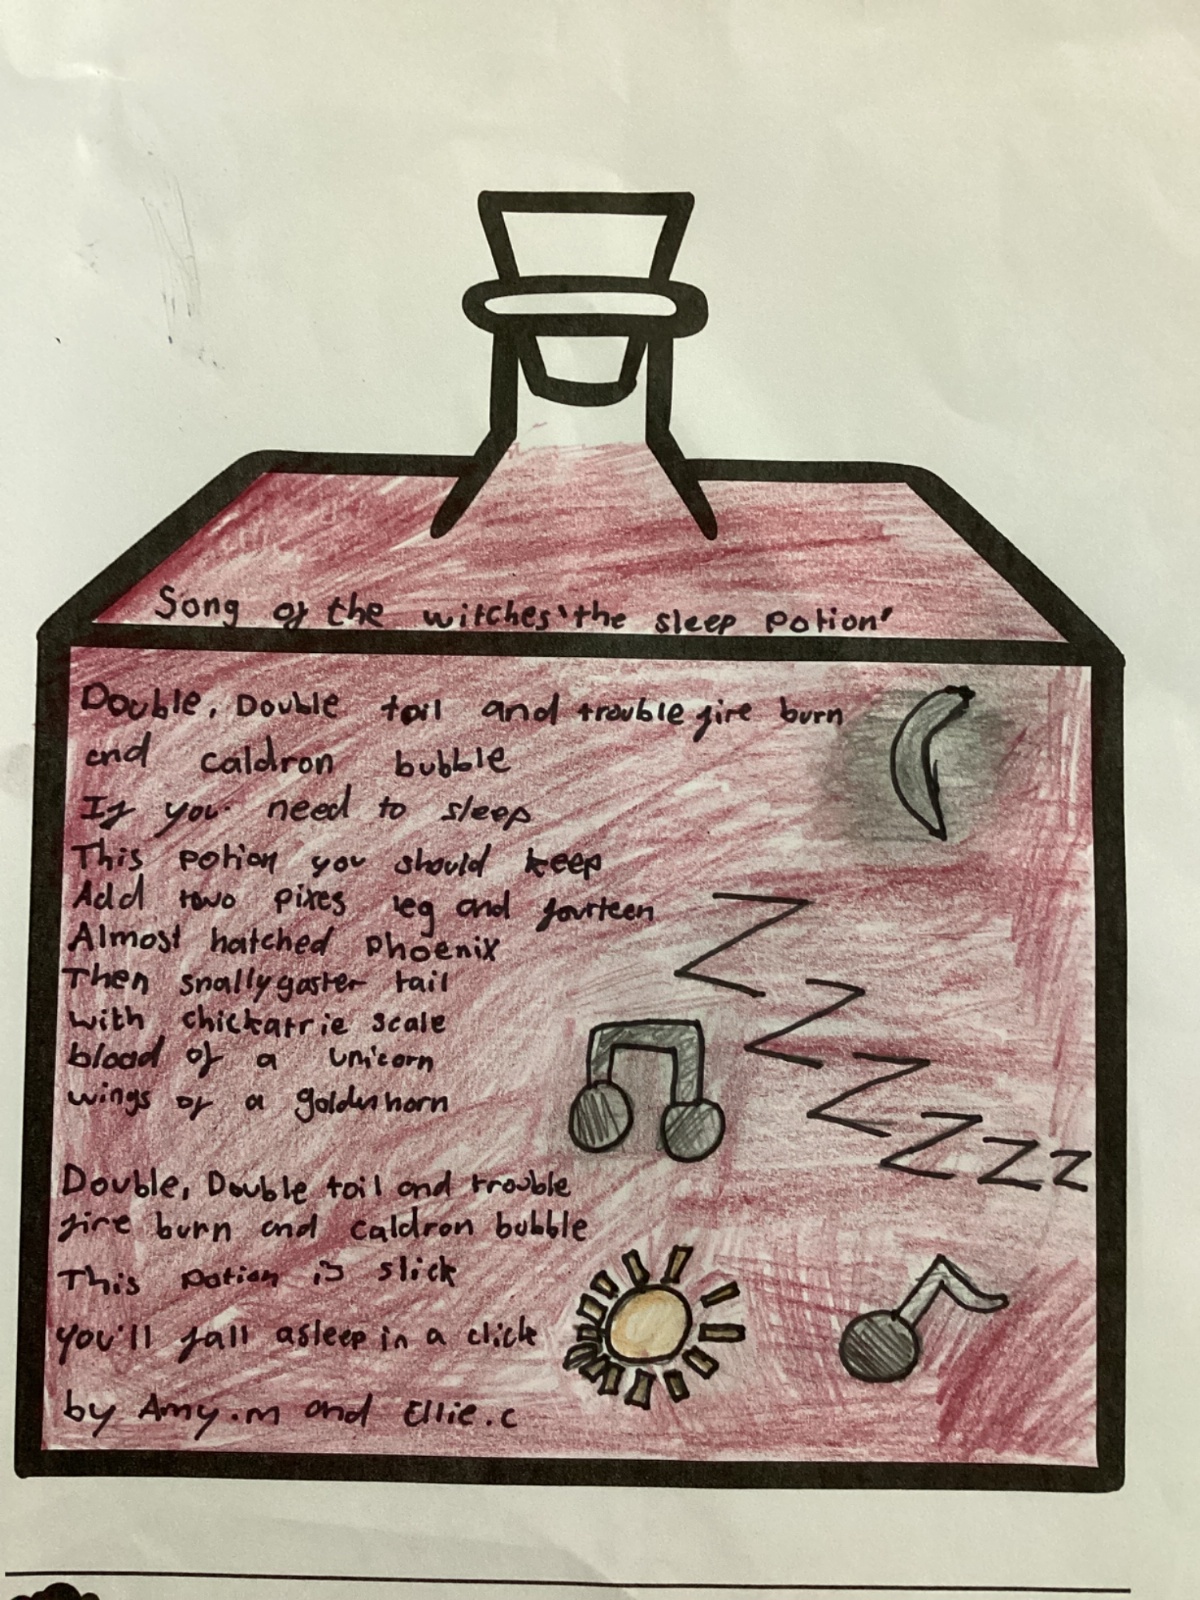 Song of the witches 'the sleep potion'
Double, Double toil and trouble fire burn
and caldron bubble
If you need to sleep
This potion you should keep
Add two pixes leg and fourteen
Almost hatched phoenix
Then snallygaster tail
with chickarrie scale
blood of a unicorn
wings of a goldenhorn
Zzzzzz
Double, Double toil and trouble
fire burn and caldron bubble
This potion is slick
you'll fall asleep in a click
by Amy.m and Ellie.c